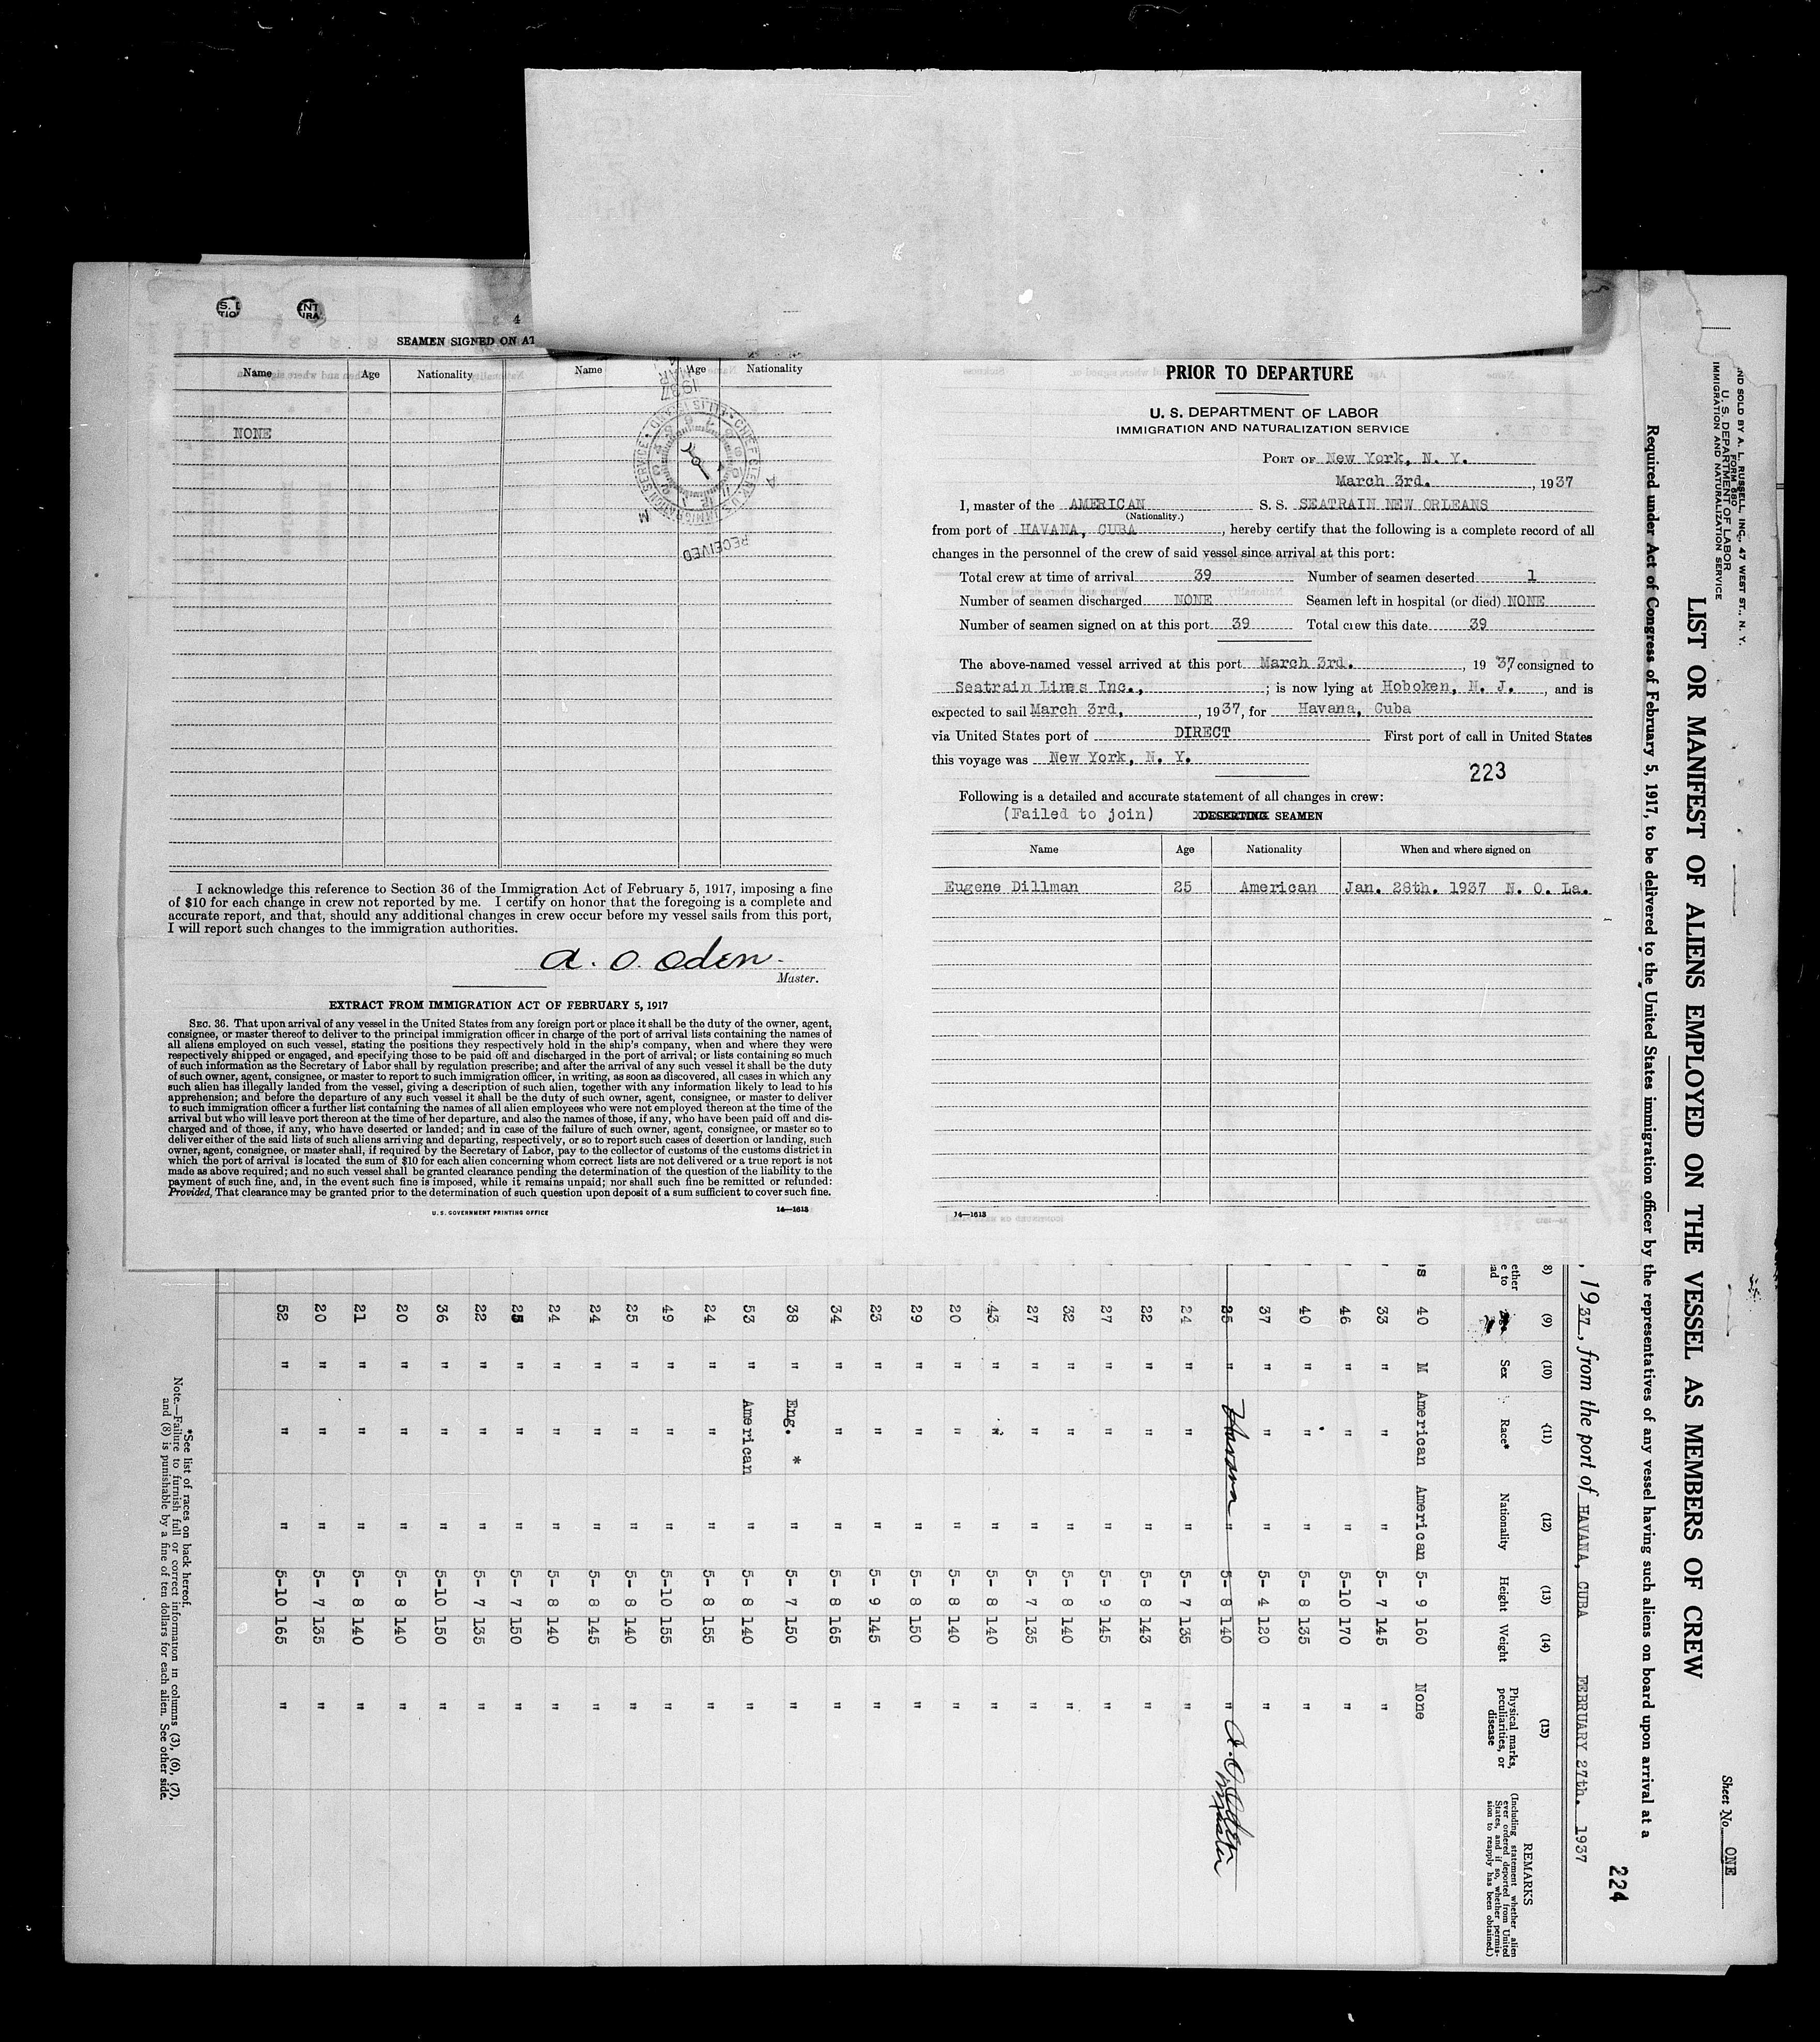 S. I
TIO
ENT
IRA
4
SEAMEN SIGNED ON AT
Name Age Nationality Name Age Nationality
NONE
MAR
1937
CHIEF CLERK U.S. IMMIGRATION SERVICE
RECEIVED
A
M
I acknowledge this reference to Section 36 of the Immigration Act of February 5, 1917, imposing a fine
of $10 for each change in crew not reported by me. I certify on honor that the foregoing is a complete and
accurate report, and that, should any additional changes in crew occur before my vessel sails from this port,
I will report such changes to the immigration authorities.
A. O. Oden
Master.
EXTRACT FROM IMMIGRATION ACT OF FEBRUARY 5, 1917
SEC. 36. That upon arrival of any vessel in the United States from any foreign port or place it shall be the duty of the owner, agent,
consignee, or master thereof to deliver to the principal immigration officer in charge of the port of arrival lists containing the names of
all aliens employed on such vessel, stating the positions they respectively hold in the ship's company, when and where they were
respectively shipped or engaged, and specifying those to be paid off and discharged in the port of arrival; or lists containing so much
of such information as the Secretary of Labor shall by regulation prescribe; and after the arrival of any such vessel it shall be the duty
of such owner, agent, consignee, or master to report to such immigration officer, in writing, as soon as discovered, all cases in which any
such alien has illegally landed from the vessel, giving a description of such alien, together with any information likely to lead to his
apprehension; and before the departure of any such vessel it shall be the duty of such owner, agent, consignee, or master to deliver
to such immigration officer a further list containing the names of all alien employees who were not employed thereon at the time of the
arrival but who will leave port thereon at the time of her departure, and also the names of those, if any, who have been paid off and dis-
charged and of those, if any, who have deserted or landed; and in case of the failure of such owner, agent, consignee, or master so to
deliver either of the said lists of such aliens arriving and departing, respectively, or so to report such cases of desertion or landing, such
owner, agent, consignee, or master shall, if required by the Secretary of Labor, pay to the collector of customs of the customs district in
which the port of arrival is located the sum of $10 for each alien concerning whom correct lists are not delivered or a true report is not
made as above required; and no such vessel shall be granted clearance pending the determination of the question of the liability to the
payment of such fine, and, in the event such fine is imposed, while it remains unpaid; nor shall such fine be remitted or refunded:
Provided, That clearance may be granted prior to the determination of such question upon deposit of a sum sufficient to cover such fine.
U. S. GOVERNMENT PRINTING OFFICE 14—1613
PRIOR TO DEPARTURE
U. S. DEPARTMENT OF LABOR
IMMIGRATION AND NATURALIZATION SERVICE
PORT OF New York, N. Y.
March 3rd. , 1937
I, master of the AMERICAN S. S. SEATRAIN NEW ORLEANS
(Nationality.)
from port of HAVANA, CUBA , hereby certify that the following is a complete record of all
changes in the personnel of the crew of said vessel since arrival at this port:
Total crew at time of arrival 39 Number of seamen deserted 1
Number of seamen discharged NONE Seamen left in hospital (or died) NONE
Number of seamen signed on at this port 39 Total crew this date 39
The above-named vessel arrived at this port March 3rd. , 19 37, consigned to
Seatrain Lines Inc., ; is now lying at Hoboken, N. J. , and is
expected to sail March 3rd, , 1937, for Havana, Cuba
via United States port of DIRECT First port of call in United States
this voyage was New York, N. Y.
223
Following is a detailed and accurate statement of all changes in crew:
(Failed to join) DESERTING SEAMEN
Name Age Nationality When and where signed on
Eugene Dillman 25 American Jan. 28th. 1937 N. O. La.
14—1613
Sheet No. ONE
ND SOLD BY A. L. RUSSELL, INC., 47 WEST ST., N. Y.
FORM 680
U. S. DEPARTMENT OF LABOR
IMMIGRATION AND NATURALIZATION SERVICE
LIST OR MANIFEST OF ALIENS EMPLOYED ON THE VESSEL AS MEMBERS OF CREW
Required under Act of Congress of February 5, 1917, to be delivered to the United States immigration officer by the representatives of any vessel having such aliens on board upon arrival at a
224
, 1937, from the port of HAVANA, CUBA FEBRUARY 27th. 1937
8) (9) (10) (11) (12) (13) (14) (15) REMARKS
ether
e to
ad
Sex Race* Nationality Height Weight Physical marks, peculiarities, or disease
(Including statement whether alien
ever ordered deported from United
States, and if so, whether permis-
sion to reapply has been obtained.)
s 40 M American American 5- 9 160 None
33 " " " 5- 7 145 "
46 " " " 5-10 170 "
40 " " " 5- 8 135 "
37 " " " 5- 4 120 "
35 " Havana " 5- 8 140 " A. O. Oden Master
24 " " " 5- 7 135 "
22 " " " 5- 8 143 "
27 " " " 5- 9 145 "
32 " " " 5- 8 140 "
27 " " " 5- 7 135 "
43 " " " 5- 8 140 "
20 " " " 5- 8 140 "
29 " " " 5- 8 150 "
23 " " " 5- 9 145 "
34 " " " 5- 8 165 "
38 " Eng. * " 5- 7 150 "
53 " American " 5- 8 140 "
24 " " " 5- 8 155 "
49 " " " 5-10 155 "
25 " " " 5- 8 140 "
24 " " " 5- 8 145 "
24 " " " 5- 8 140 "
25 " " " 5- 7 150 "
22 " " " 5- 7 135 "
36 " " " 5-10 150 "
20 " " " 5- 8 140 "
21 " " " 5- 8 140 "
20 " " " 5- 7 135 "
52 " " " 5-10 165 "
*See list of races on back hereof.
Note.—Failure to furnish full or correct information in columns (3), (6), (7),
and (8) is punishable by a fine of ten dollars for each alien. See other side.